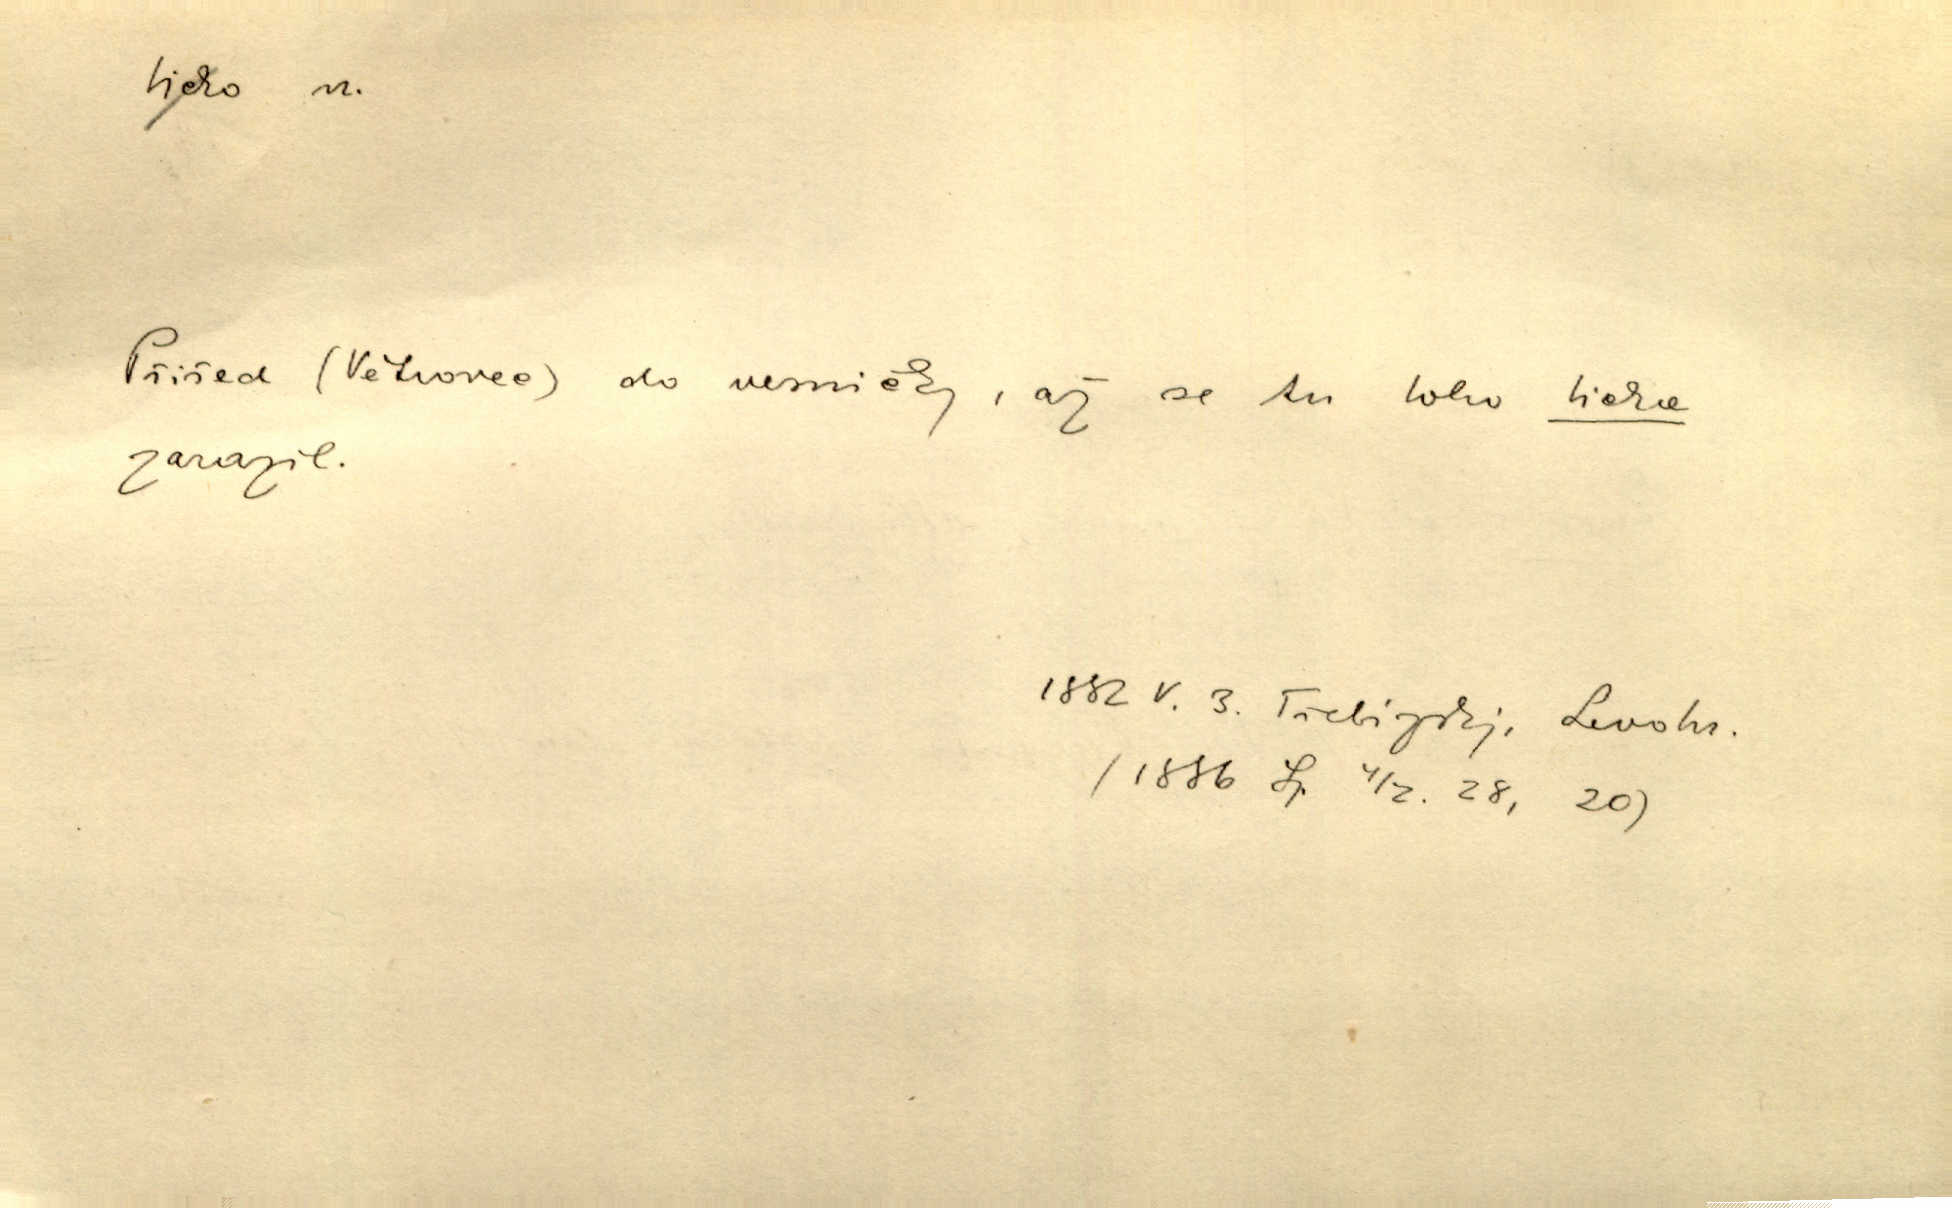 ticho n.
Přišed (Větrovec) do vesničky, až se tu toho ticha
zarazil.
1882 V. B. Třebízský, Levohr.
(1886 Sp 4/2. 28, 20)